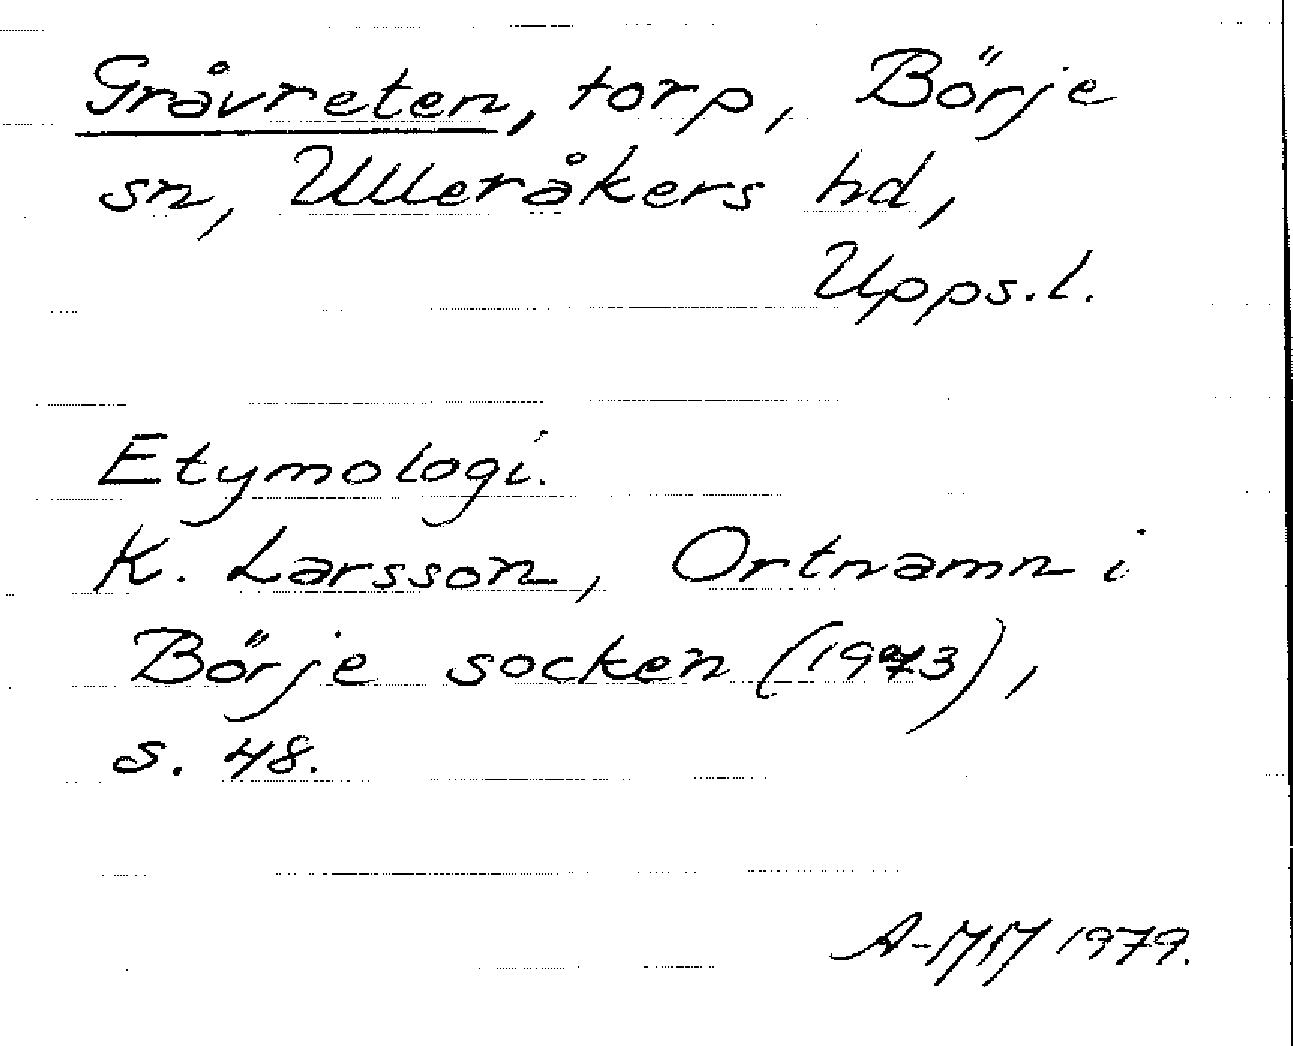 Gråvreten, torp, Börje
sn, Ulleråkers hd,
Upps.l.
Etymologi.
K. Larsson, Ortnamn i
Börje socken (1973),
s. 48.
A-MM 1979.